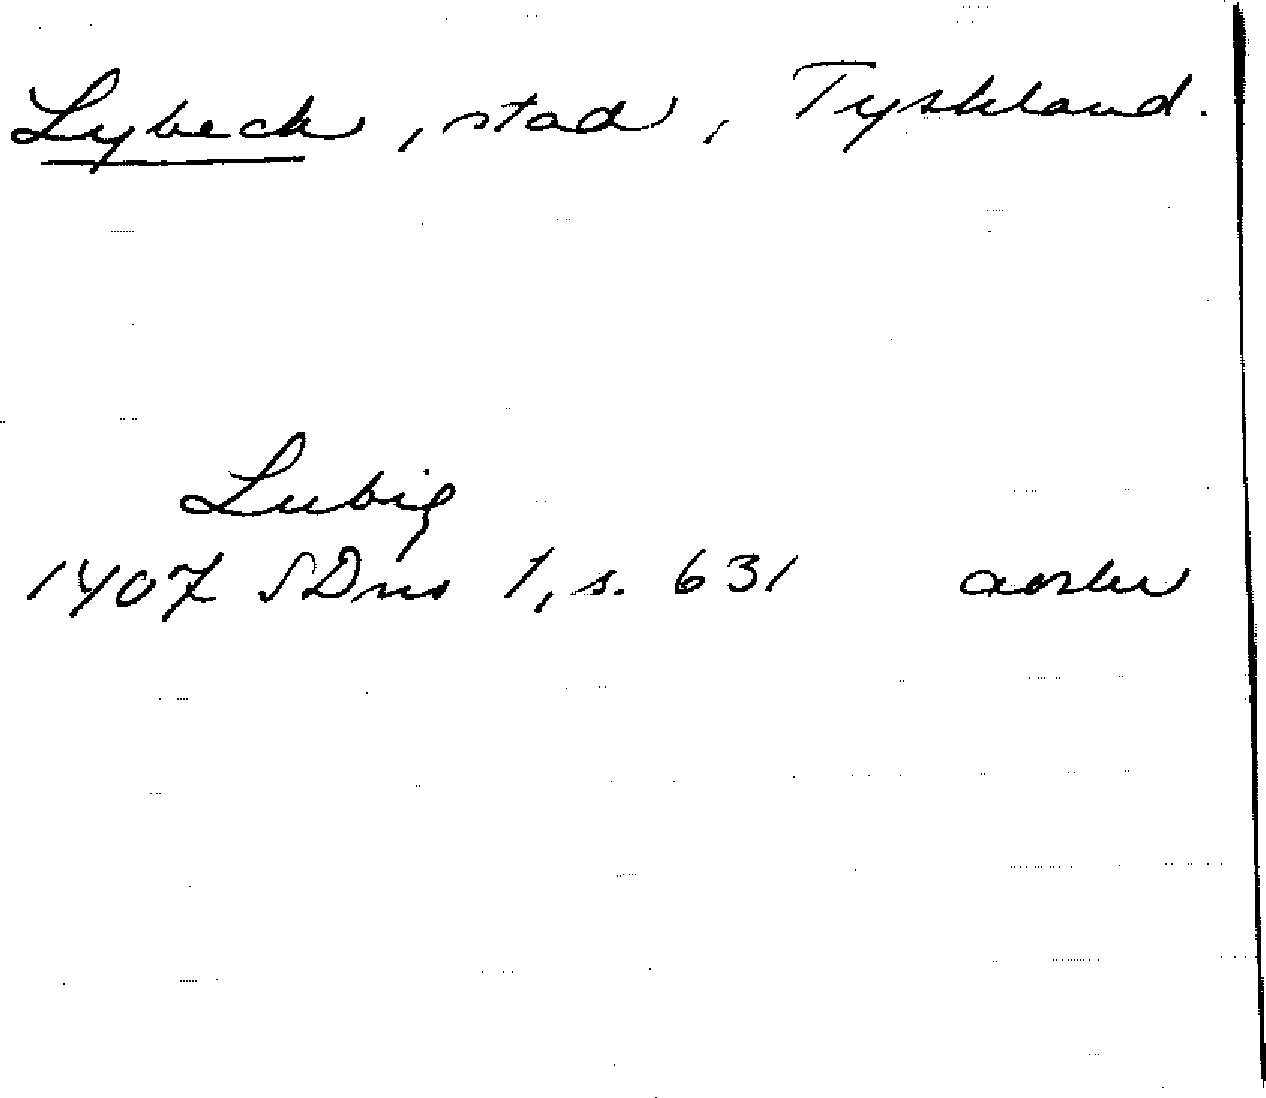 Lybeck, stad, Tyskland.
Lubig
1407 SDns 1, s. 631